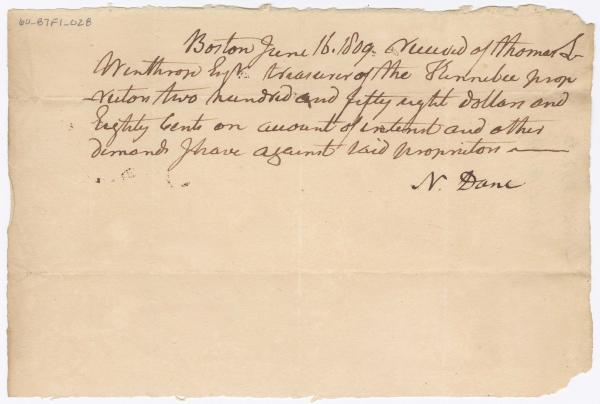 60-B7F1-028
Boston June 16. 1809. received of Thomas L
Winthrop Esqr. treasurer of the Kennebec prop
rietors two hundred and fifty eight dollars and
Eighty Cents on account of interest and other
demands I have against said proprietors —
N. Dane